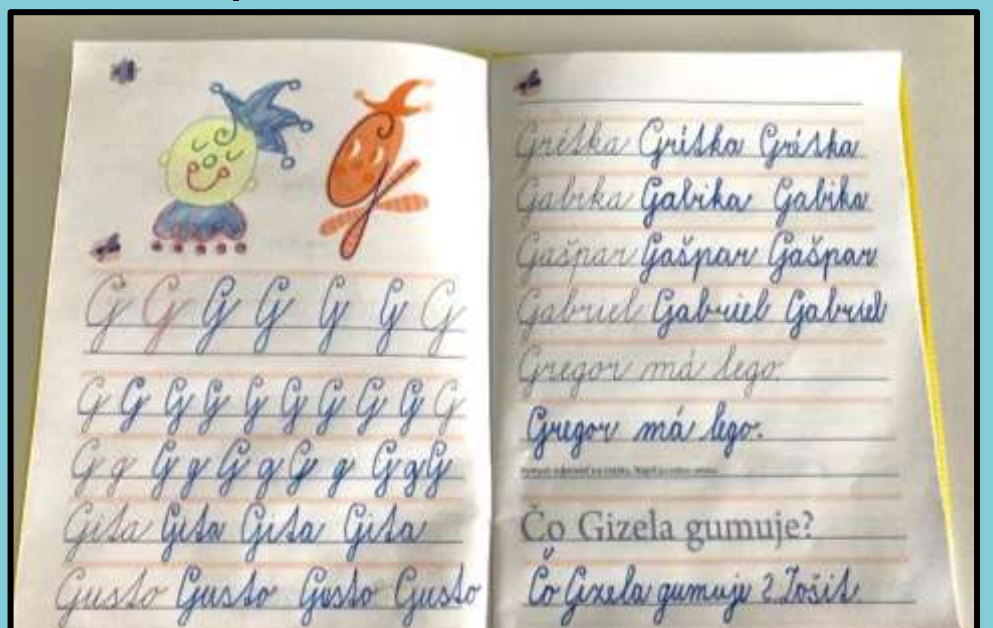 G G G G G G G
G G G G G G G G G G
G g G g G g G g G g G
Gita Gita Gita Gita
Gusto Gusto Gusto Gusto
Gritka Gritka Gritka
Gabika Gabika Gabika
Gašpar Gašpar Gašpar
Gabriel Gabriel Gabriel
Gregor má lego.
Gregor má lego.
Čo Gizela gumuje?
Čo Gizela gumuje? Zošit.